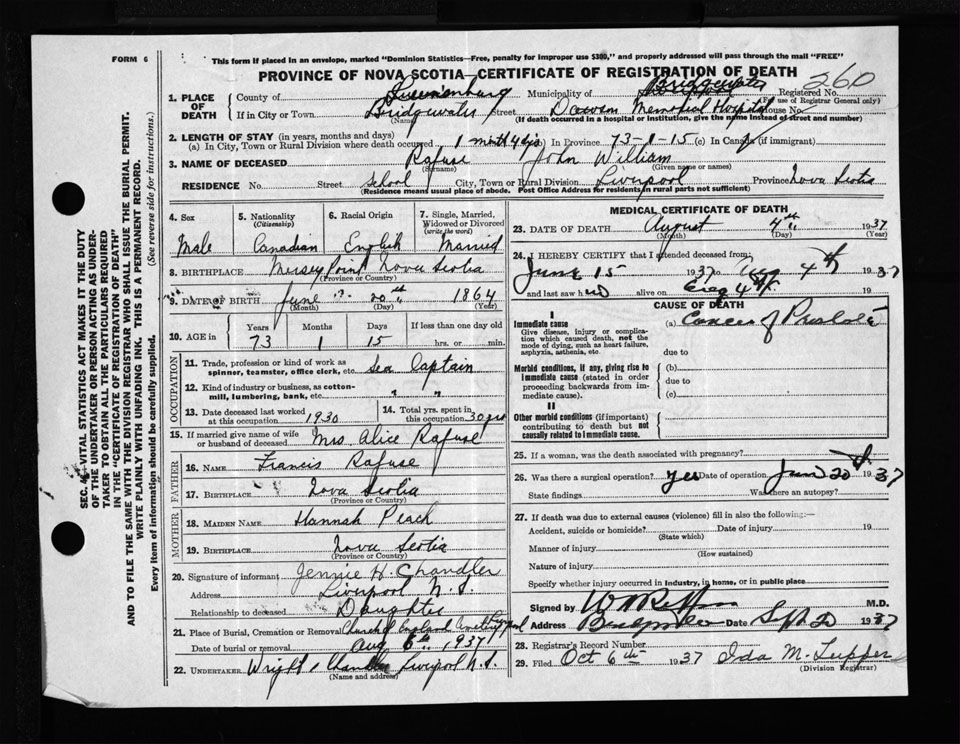 FORM 6
This form if placed in an envelope, marked "Dominion Statistics—Free, penalty for improper use $300," and properly addressed will pass through the mail "FREE"
PROVINCE OF NOVA SCOTIA—CERTIFICATE OF REGISTRATION OF DEATH
260
1. PLACE OF DEATH
County of Lunenburg Municipality of Bridgewater Registered No.
(For use of Registrar General only)
If in City or Town Bridgewater Street Dawson Memorial Hospital House No.
(Name) (If death occurred in a hospital or institution, give the name instead of street and number)
2. LENGTH OF STAY (in years, months and days)
(a) In City, Town or Rural Division where death occurred 1 month 4 dys (b) In Province 73-1-15 (c) In Canada (if immigrant)
3. NAME OF DECEASED Rafuse John William
(Surname) (Given name or names)
RESIDENCE No. Street School City, Town or Rural Division Liverpool Province Nova Scotia
(Residence means usual place of abode. Post Office Address for Residents in rural parts not sufficient)
4. Sex
Male
5. Nationality (Citizenship)
Canadian
6. Racial Origin
English
7. Single, Married, Widowed or Divorced (write the word)
Married
8. BIRTHPLACE Mersey Point Nova Scotia
(Province or Country)
9. DATE OF BIRTH June 20th 1864
(Month) (Day) (Year)
10. AGE in
Years Months Days If less than one day old
73 1 15 hrs. or min.
OCCUPATION
11. Trade, profession or kind of work as spinner, teamster, office clerk, etc. Sea Captain
12. Kind of industry or business, as cotton-mill, lumbering, bank, etc. " "
13. Date deceased last worked at this occupation 1930
14. Total yrs. spent in this occupation 30 yrs
15. If married give name of wife or husband of deceased Mrs. Alice Rafuse
FATHER
16. NAME Francis Rafuse
17. BIRTHPLACE Nova Scotia
(Province or Country)
MOTHER
18. MAIDEN NAME Hannah Peach
19. BIRTHPLACE Nova Scotia
(Province or Country)
20. Signature of informant Jennie H. Chandler
Address Liverpool N.S.
Relationship to deceased Daughter
21. Place of Burial, Cremation or Removal Church of England Cemetery Liverpool
Date of burial or removal Aug 6th 1937
22. UNDERTAKER Wright & Chandler Liverpool N.S.
(Name and address)
MEDICAL CERTIFICATE OF DEATH
23. DATE OF DEATH August 4th 1937
(Month) (Day) (Year)
24. I HEREBY CERTIFY that I attended deceased from:
June 15 1937 to Aug 4th 1937
and last saw him alive on Aug 4th
CAUSE OF DEATH
I
Immediate cause
Give disease, injury or complication which caused death, not the mode of dying, such as heart failure, asphyxia, asthenia, etc.
(a) Cancer of Prostate
due to
Morbid conditions, if any, giving rise to immediate cause (stated in order proceeding backwards from immediate cause).
(b)
due to
(c)
II
Other morbid conditions (if important) contributing to death but not causally related to immediate cause.
25. If a woman, was the death associated with pregnancy?
26. Was there a surgical operation? Yes Date of operation June 20th 1937
State findings Was there an autopsy?
27. If death was due to external causes (violence) fill in also the following:—
Accident, suicide or homicide? Date of injury 19
(State which)
Manner of injury
(How sustained)
Nature of injury
Specify whether injury occurred in industry, in home, or in public place
Signed by M.D.
Address Bridgewater Date Sept 20 1937
28. Registrar's Record Number
29. Filed Oct 6th 1937 Ida M. Tupper
(Division Registrar)
SEC. 4. VITAL STATISTICS ACT MAKES IT THE DUTY
OF THE UNDERTAKER OR PERSON ACTING AS UNDER-
TAKER TO OBTAIN ALL THE PARTICULARS REQUIRED
IN THE "CERTIFICATE OF REGISTRATION OF DEATH"
AND TO FILE THE SAME WITH THE DIVISION REGISTRAR WHO SHALL ISSUE THE BURIAL PERMIT.
WRITE PLAINLY WITH UNFADING INK. THIS IS A PERMANENT RECORD.
Every item of information should be carefully supplied. (See reverse side for instructions.)